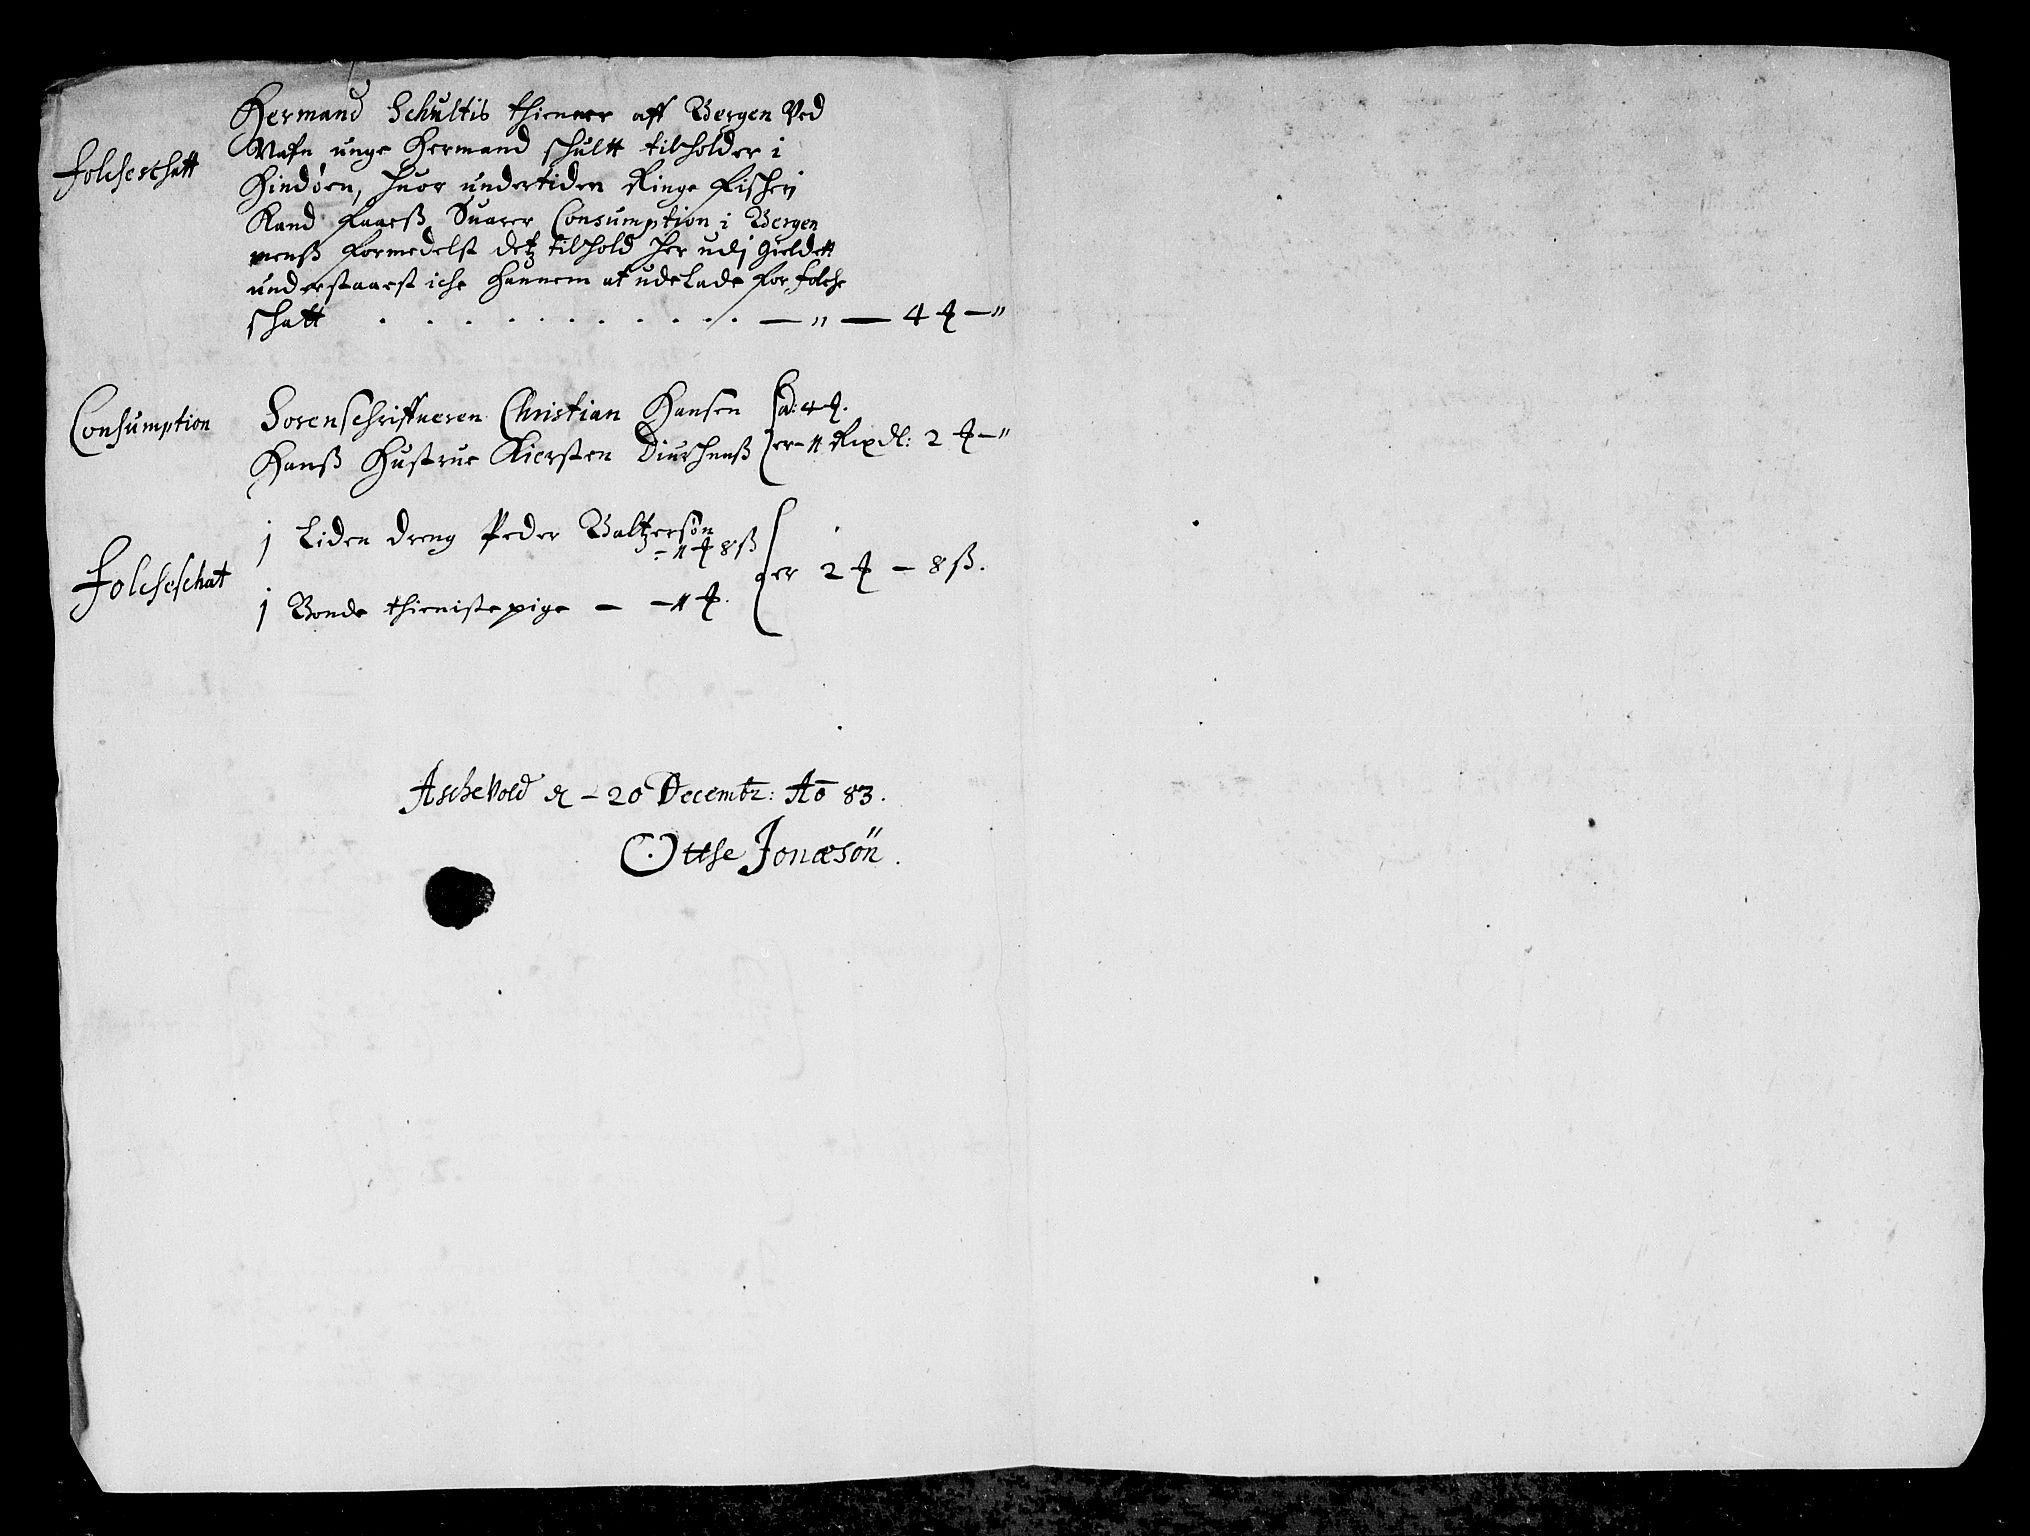 Folcheschatt
Hermand Schultis thienner aff Bergen Ved
Nafn unge Hermand schultt tilholder i
Hindøen, huor undertiden Ringe Fischerj
Kand Faaesß, Suarer Consumption i Bergen
menß formedelst detz tilhold her udj Gieldett
understaaest iche hannem at udelade for folche
schatt . . . . . . . . . . — " — 4 ₰ — "
Consumption
Sorenschriffueren Christian Hansen
Hanß Hustrue Kiersten Diurhuuß
a: 4 ₰.
er - 11 Rixdl: 2 ₰ — "
Folcheschat
j Liden dreng Peder Baltzersøn
- 11 ₰ 8 ß
j Bonde thieniste pige — - 11 ₰.
er 2 ₰ — 8 ß.
Aschevold d - 20 Decembr: Ao 83.
Ottse Jonæsøn.